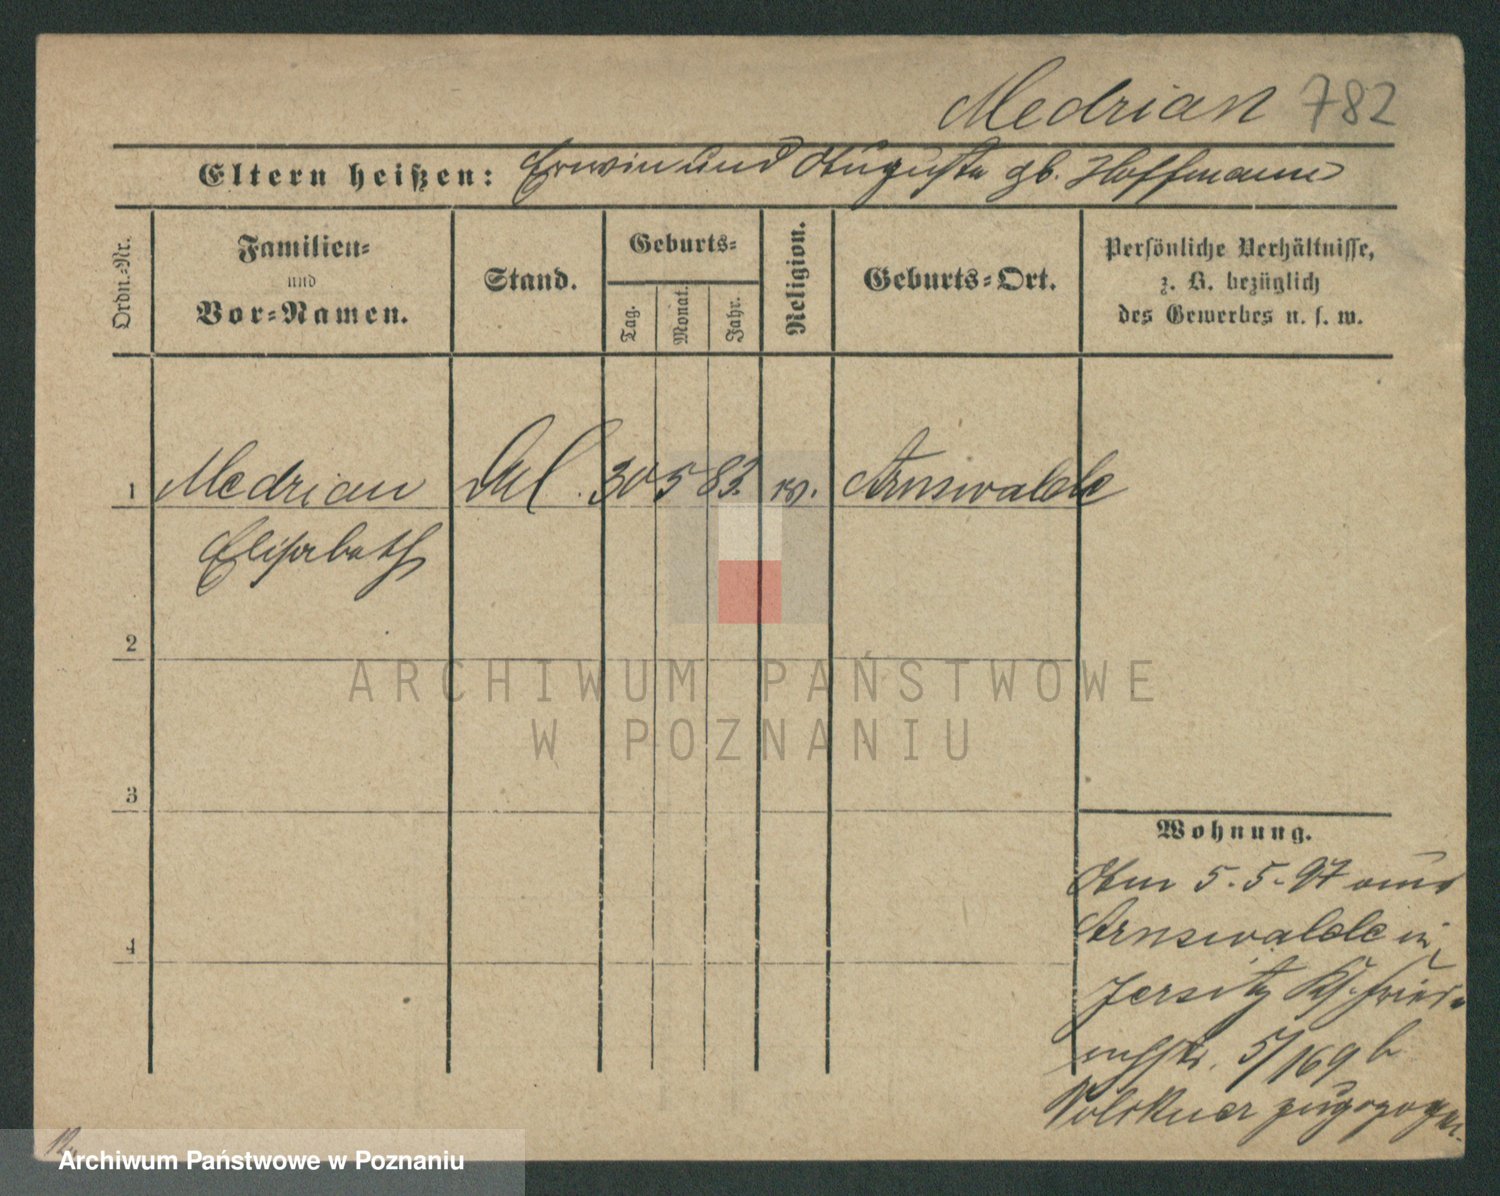 Medrian 782
Eltern heißen: Erwin und Auguste gb. Hoffmann
Ordn.-Nr.
Familien-
und
Vor-Namen.
Stand.
Geburts-
Tag.
Monat.
Jahr.
Religion.
Geburts-Ort.
Persönliche Verhältnisse,
z. B. bezüglich
des Gewerbes u. s. w.
1 Medrian 30 5 83. ev. Arnswalde
Elisabeth
2
3
4
ARCHIWUM PAŃSTWOWE
W POZNANIU
Wohnung.
Am 5.5.97 aus
Arnswalde in
Jersitz
5/169 b
Völkner zugezogen.
Archiwum Państwowe w Poznaniu